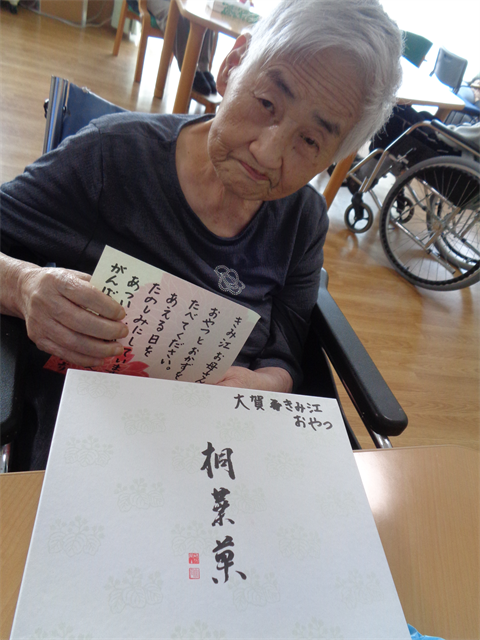 きみ江お母さん
おやつとおかずを
たべてください。
あえる日を
たのしみにしています
あつい
がんば
大賀きみ江
おやつ
桐葉菓